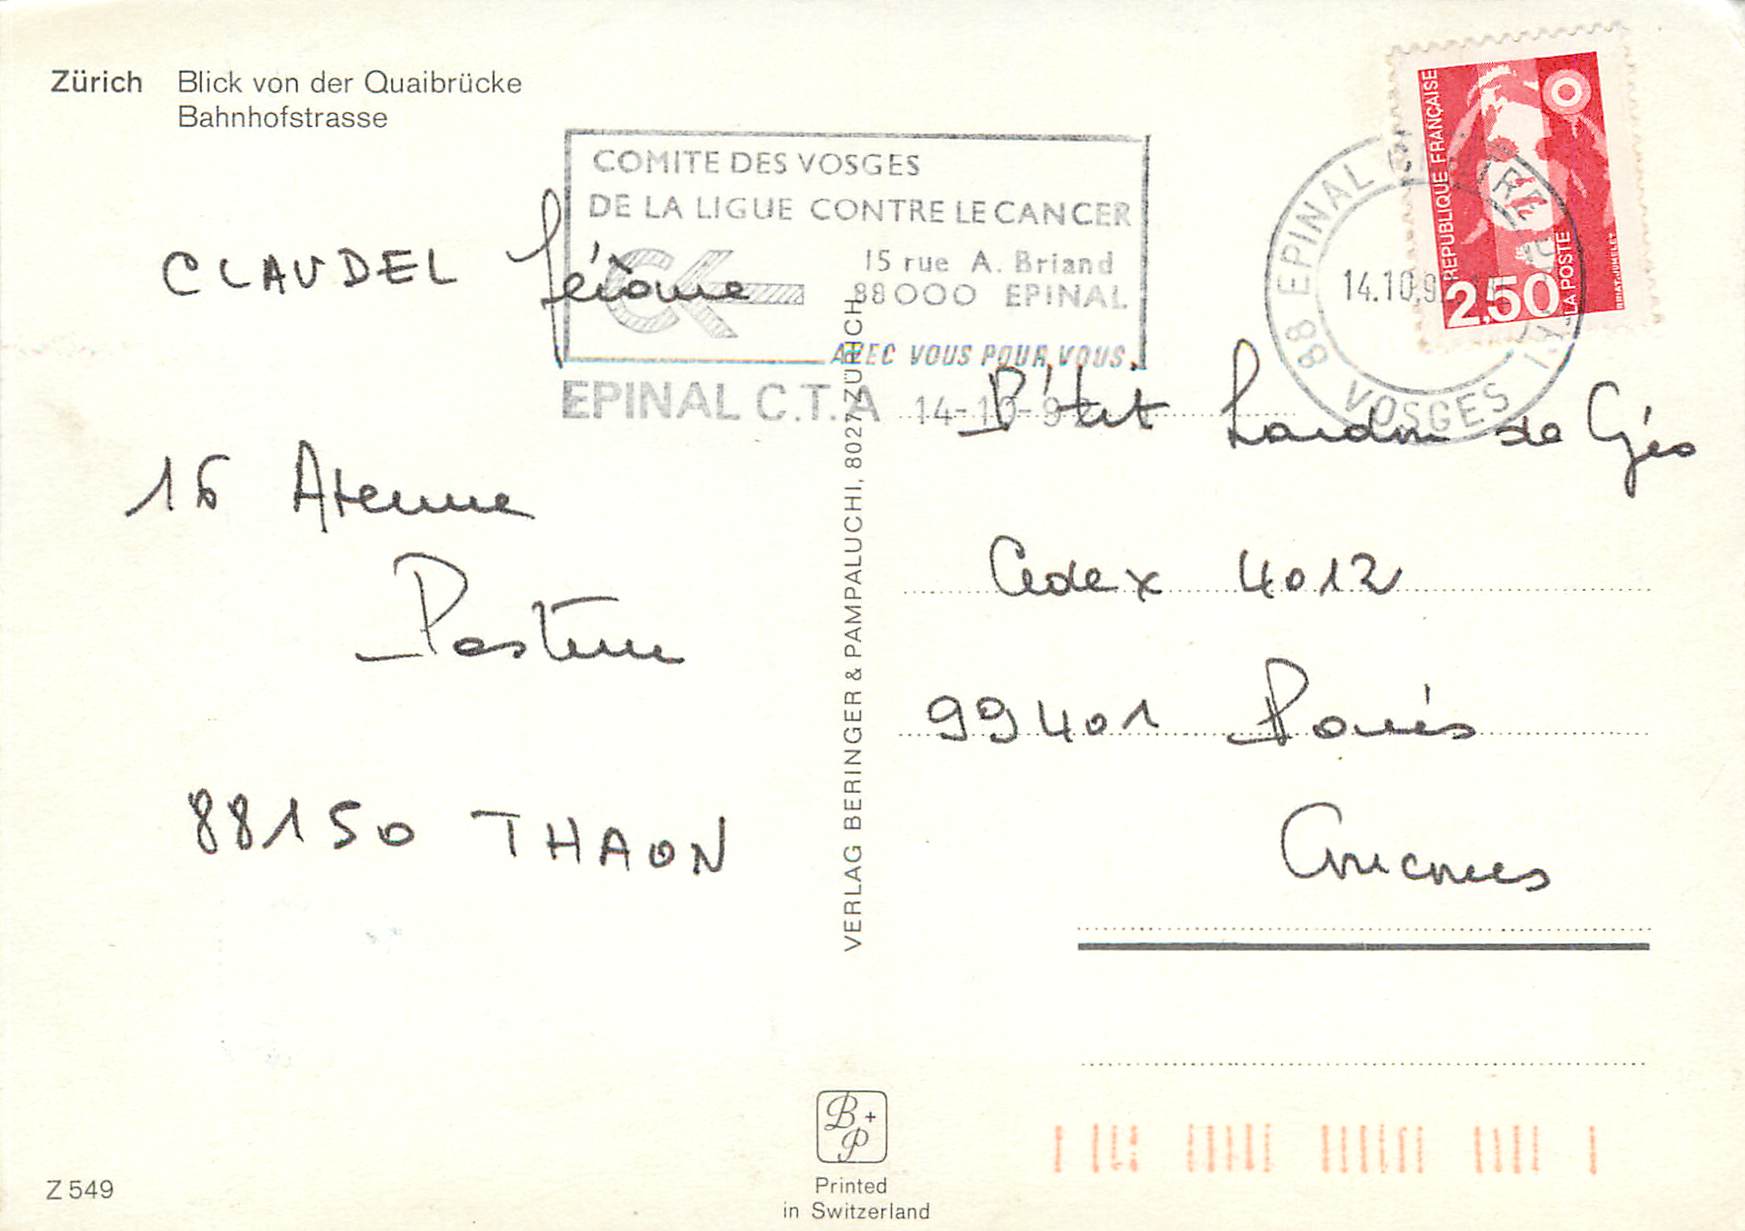 Zürich Blick von der Quaibrücke
Bahnhofstrasse
COMITE DES VOSGES
DE LA LIGUE CONTRE LE CANCER
15 rue A. Briand
88000 EPINAL
AVEC VOUS POUR VOUS.
EPINAL C.T.A 14-10-9
88 EPINAL
VOSGES
14.10.9
REPUBLIQUE FRANÇAISE
2,50
LA POSTE
BRIAT-JUMELET
CLAUDEL Jérôme
16 Avenue
Pasteur
88150 THAON
P'tit Lardon de Géo
Cedex 4012
99401 Paris
Concours
VERLAG BERINGER & PAMPALUCHI, 8027 ZÜRICH
B+P
Printed
in Switzerland
Z 549